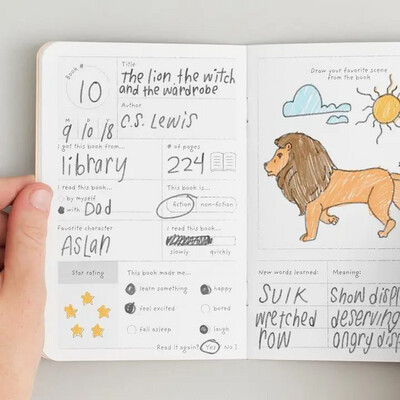 Book #
10
M D Y
9 10 18
Title
the lion, the witch
and the wardrobe
Author
C.S. Lewis
I got this book from...
library
# of pages
224
I read this book...
by myself
with Dad
This book is...
fiction non-fiction
Favorite character
ASLAN
I read this book...
slowly quickly
Star rating
This book made me...
learn something
happy
feel excited
bored
fall asleep
laugh
Read it again? Yes No
Draw your favorite scene
from the book
New words learned: Meaning:
SULK show displ
wretched deserving
row angry disp